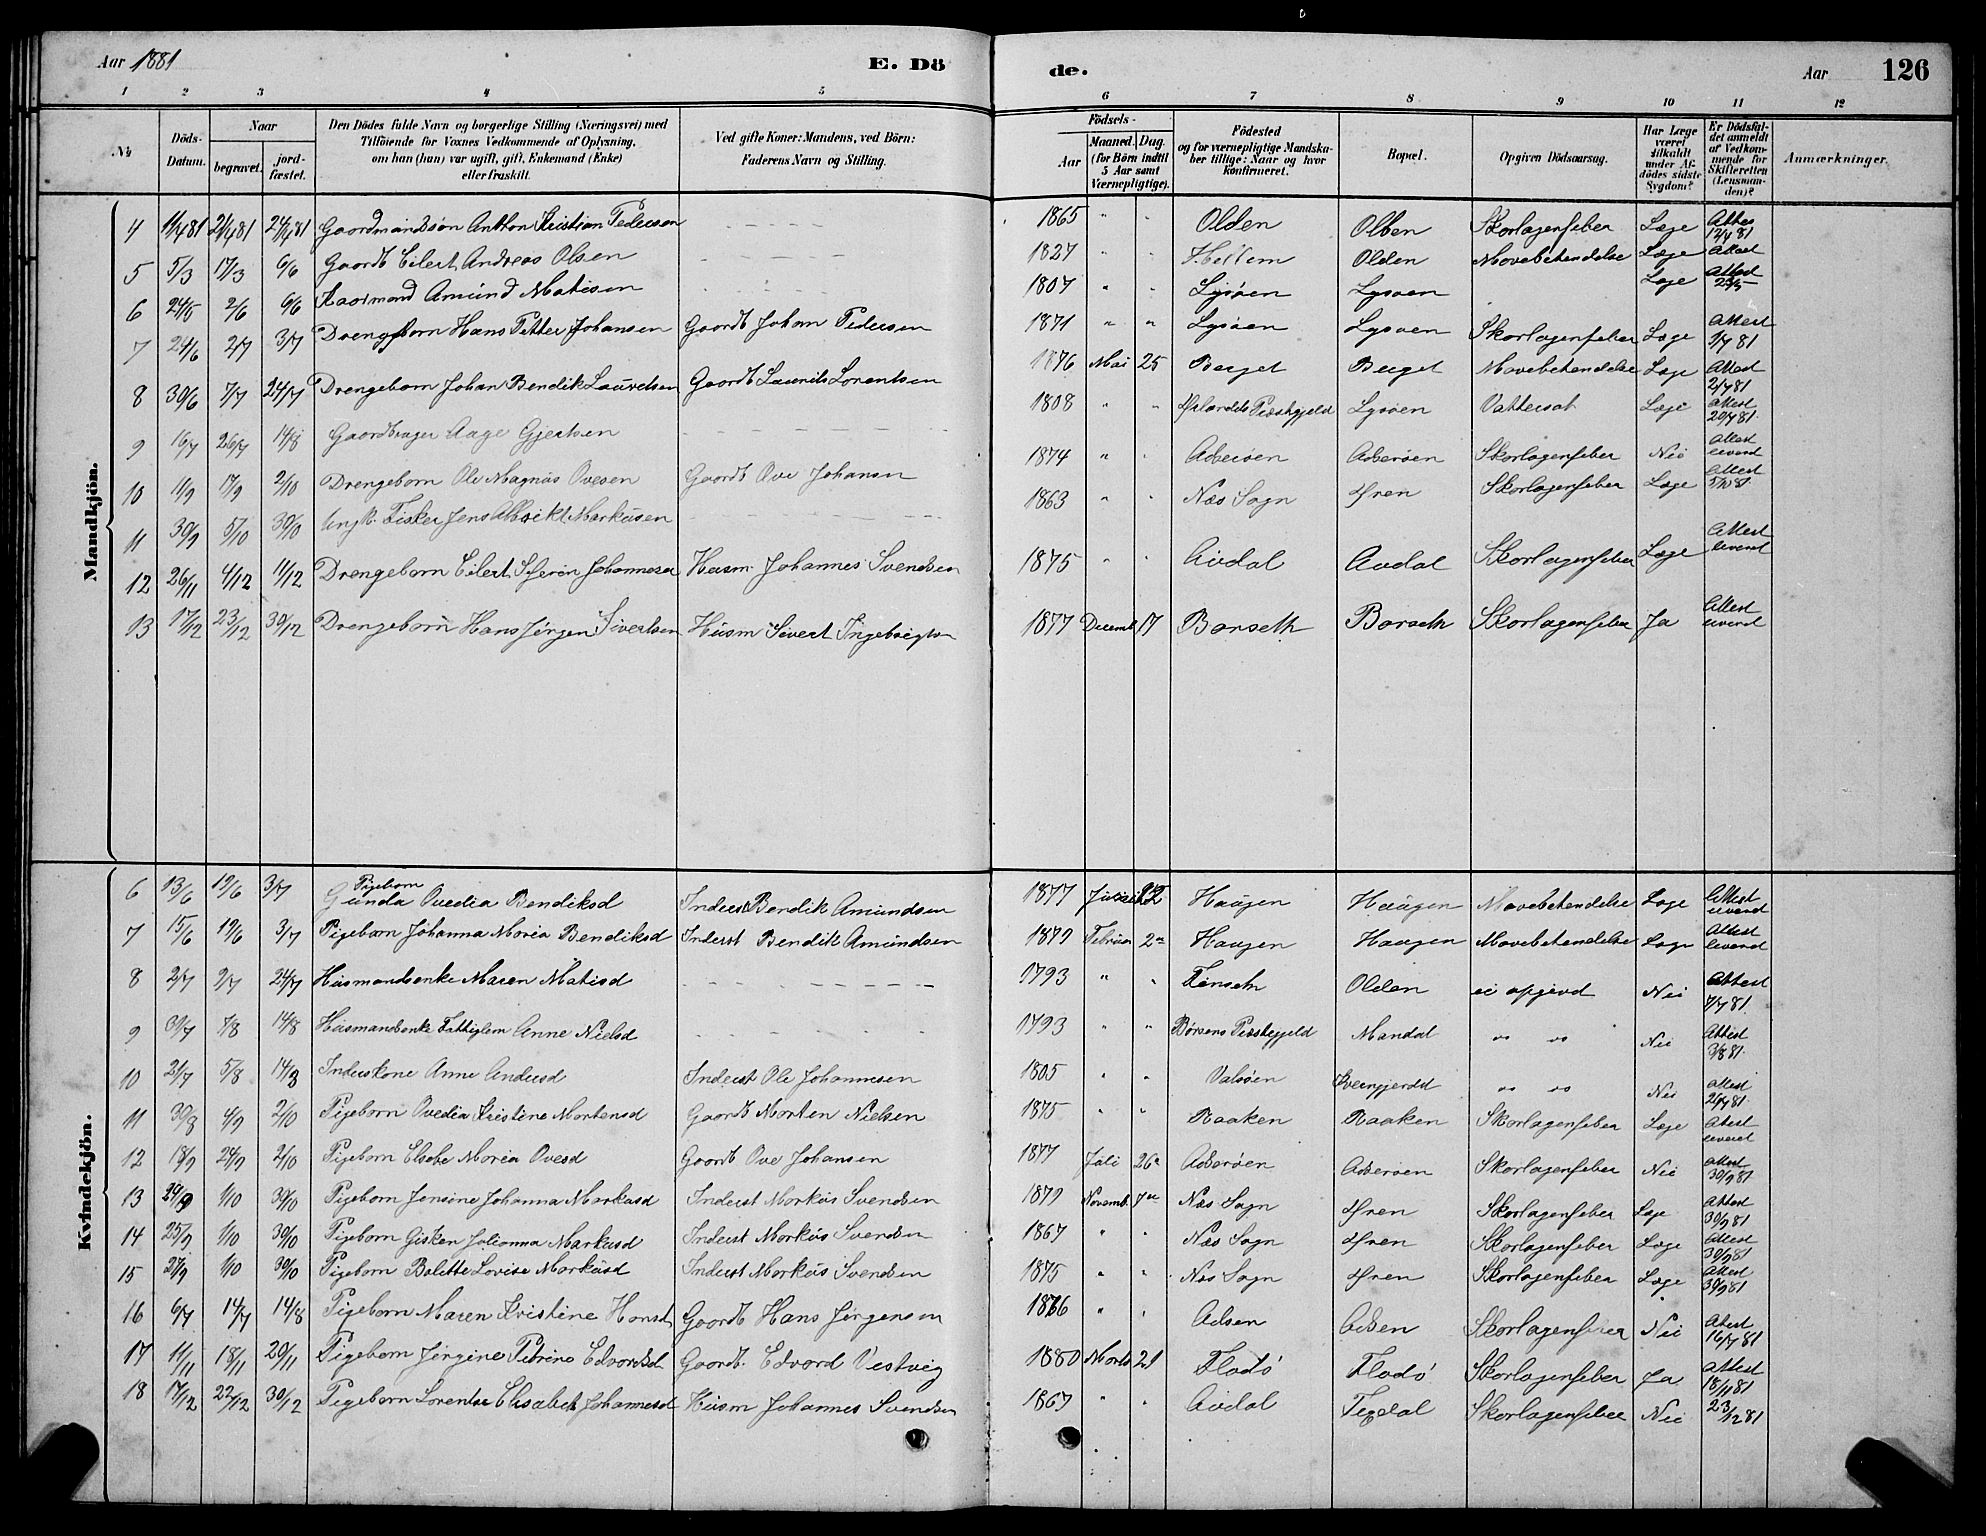 Aar 1881 E. Dö de. Aar 126
1 2 3 4 5 6 7 8 9 10 11 12
№ Döds-Datum. Naar begravet. jord-fæstet. Den Dödes fulde Navn og borgerlige Stilling (Næringsvei) med Tilföiende for Voxnes Vedkommende af Oplysning, om han (hun) var ugift, gift, Enkemand (Enke) eller fraskilt. Ved gifte Koner: Mandens, ved Börn: Faderens Navn og Stilling. Födsels- Aar Maaned. Dag. (for Börn indtil 5 Aar samt Værnepligtige). Födested og for værnepligtige Mandska-ber tillige: Naar og hvor konfirmeret. Bopæl. Opgiven Dödsaarsag. Har Læge været tilkaldt under Af-dödes sidste Sygdom? Er Dödsfal-det anmeldt af Vedkom-mende for Skifteretten (Lensman-den)? Anmærkninger.
Mandkjön.
4 11/4 81 21/4 81 24/4 81 Gaardmandssøn Anthon Kristian Pedersen - - - - - 1865 " " Olden Olden Skarlagensfeber Læge Attest 12/4 81
5 5/3 17/3 6/6 Gaardb Eilert Andreas Olsen - - - - - 1827 " " Hellem Olden Mavebetendelse Læge Attest
6 24/5 2/6 6/6 Kaarmand Amund Matisen - - - - - 1807 " " Lysøen Lysøen Læge Attest
7 24/6 2/7 3/7 Drengebarn Hans Petter Johansen Gaardb Johan Pedersen 1871 " " Lysøen Lysøen Skarlagensfeber Læge Attest 1/7 81
8 30/6 7/7 24/7 Drengebarn Johan Bendik Lauretsen Gaardb Laurits Lorentsen 1876 Mai 25 Berget Berget Mavebetendelse Læge Attest 2/7 81
9 16/7 26/7 14/8 Gaardbruger Aage Gjertsen - - - - - 1808 " " Ørlandets Præstegjeld Lysøen Vattersot Læge Attest 20/7 81
10 11/9 17/9 2/10 Drengebarn Ole Magnus Ovesen Gaardb Ove Johansen 1874 " " Adserøen Adserøen Skarlagensfeber Nei Attest leverd
11 30/9 5/10 30/10 Ungk. Fisker Jens Albrikt Markusen - - - - - 1863 " " Næs Sogn Øren Skarlagensfeber Læge Attest 5/10 81
12 26/11 4/12 11/12 Drengebarn Eilert Søren Johannesen Husm Johannes Svendsen 1875 " " Avdal Avdal Skarlagensfeber Læge Attest leverd
13 17/12 23/12 30/12 Drengebarn Hans Jørgen Sivertsen Husm Sivert Ingebrigtsn 1877 Decemb 17 Borseth Borseth Skarlagensfeber Ja Attest leverd
Kvindekjön.
6 13/6 19/6 3/7 Pigebarn Gunda Ovedia Bendiksd Inderst Bendik Amundsen 1877 12 Haugen Haugen Mavebetendelse Læge Attest leverd
7 15/6 19/6 3/7 Pigebarn Johanna Maria Bendiksd Inderst Bendik Amundsen 1879 Februar 2en Haugen Haugen Mavebetendelse Læge Attest leverd
8 2/7 9/7 24/7 Husmandsenke Maren Matisd - - - - - 1793 " " Finseth Olden ei opgivd Nei Attest 7/7 81
9 30/7 7/8 14/8 Husmandsenke Fattiglem Anne Nielsd - - - - - 1793 " " Børsens Præstegjeld Mandal " " Nei Attest 3/8 81
10 21/7 5/8 14/8 Inderskone Anne Andersd Inderst Ole Johannesen 1805 " " Valsøen Kverngjerdet " " Nei Attest 26/7 81
11 30/8 4/9 2/10 Pigebarn Ovedia Kristine Mortensd Gaardb Morten Nielsen 1875 " " Raaken Raaken Skarlagensfeber Læge Attest leveret
12 18/9 24/9 2/10 Pigebarn Elsebe Maria Ovesd Gaardb Ove Johansen 1877 Juli 26e Adserøen Adserøen Skarlagensfeber Nei Attest 30/9 81
13 24/9 1/10 30/10 Pigebarn Jensine Johanna Markusd Inderst Markus Svendsen 1879 Novemb. 7en Næs Sogn Øren Skarlagensfeber Læge Attest 30/9 81
14 25/9 1/10 30/10 Pigebarn Gisken Julianna Markusd Inderst Markus Svendsen 1867 " " Næs Sogn Øren Skarlagensfeber Læge Attest 30/9 81
15 27/9 1/10 30/10 Pigebarn Bolette Lovise Markusd Inderst Markus Svendsen 1875 " " Næs Sogn Øren Skarlagensfeber Læge Attest 30/9 81
16 6/7 14/7 14/8 Pigebarn Maren Kristine Hansd Gaardb Hans Jørgensen 1876 " " Adsen Adsen Skarlagensfeber Nei Attest 16/7 81
17 11/11 18/11 20/11 Pigebarn Jørgine Petrine Edvardsd Gaardb. Edvard Vestvig 1880 Marts 21 Flado Flado Skarlagensfeber Ja Attest 18/11 81
18 17/12 22/12 30/12 Pigebarn Lorentse Elisabet Johannesd Husm Johannes Svendsen 1867 " " Avdal Tegdal Skarlagensfeber Nei 23/12 81